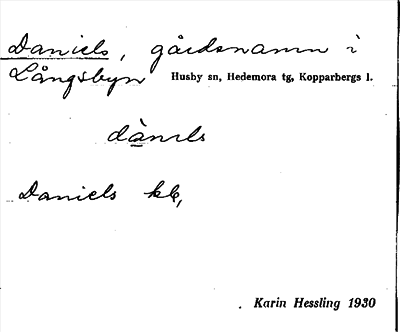 Daniels, gårdsnamn i
Långsbyn Husby sn, Hedemora tg, Kopparbergs l.
dànıls
Daniels kb,
Karin Hessling 1930